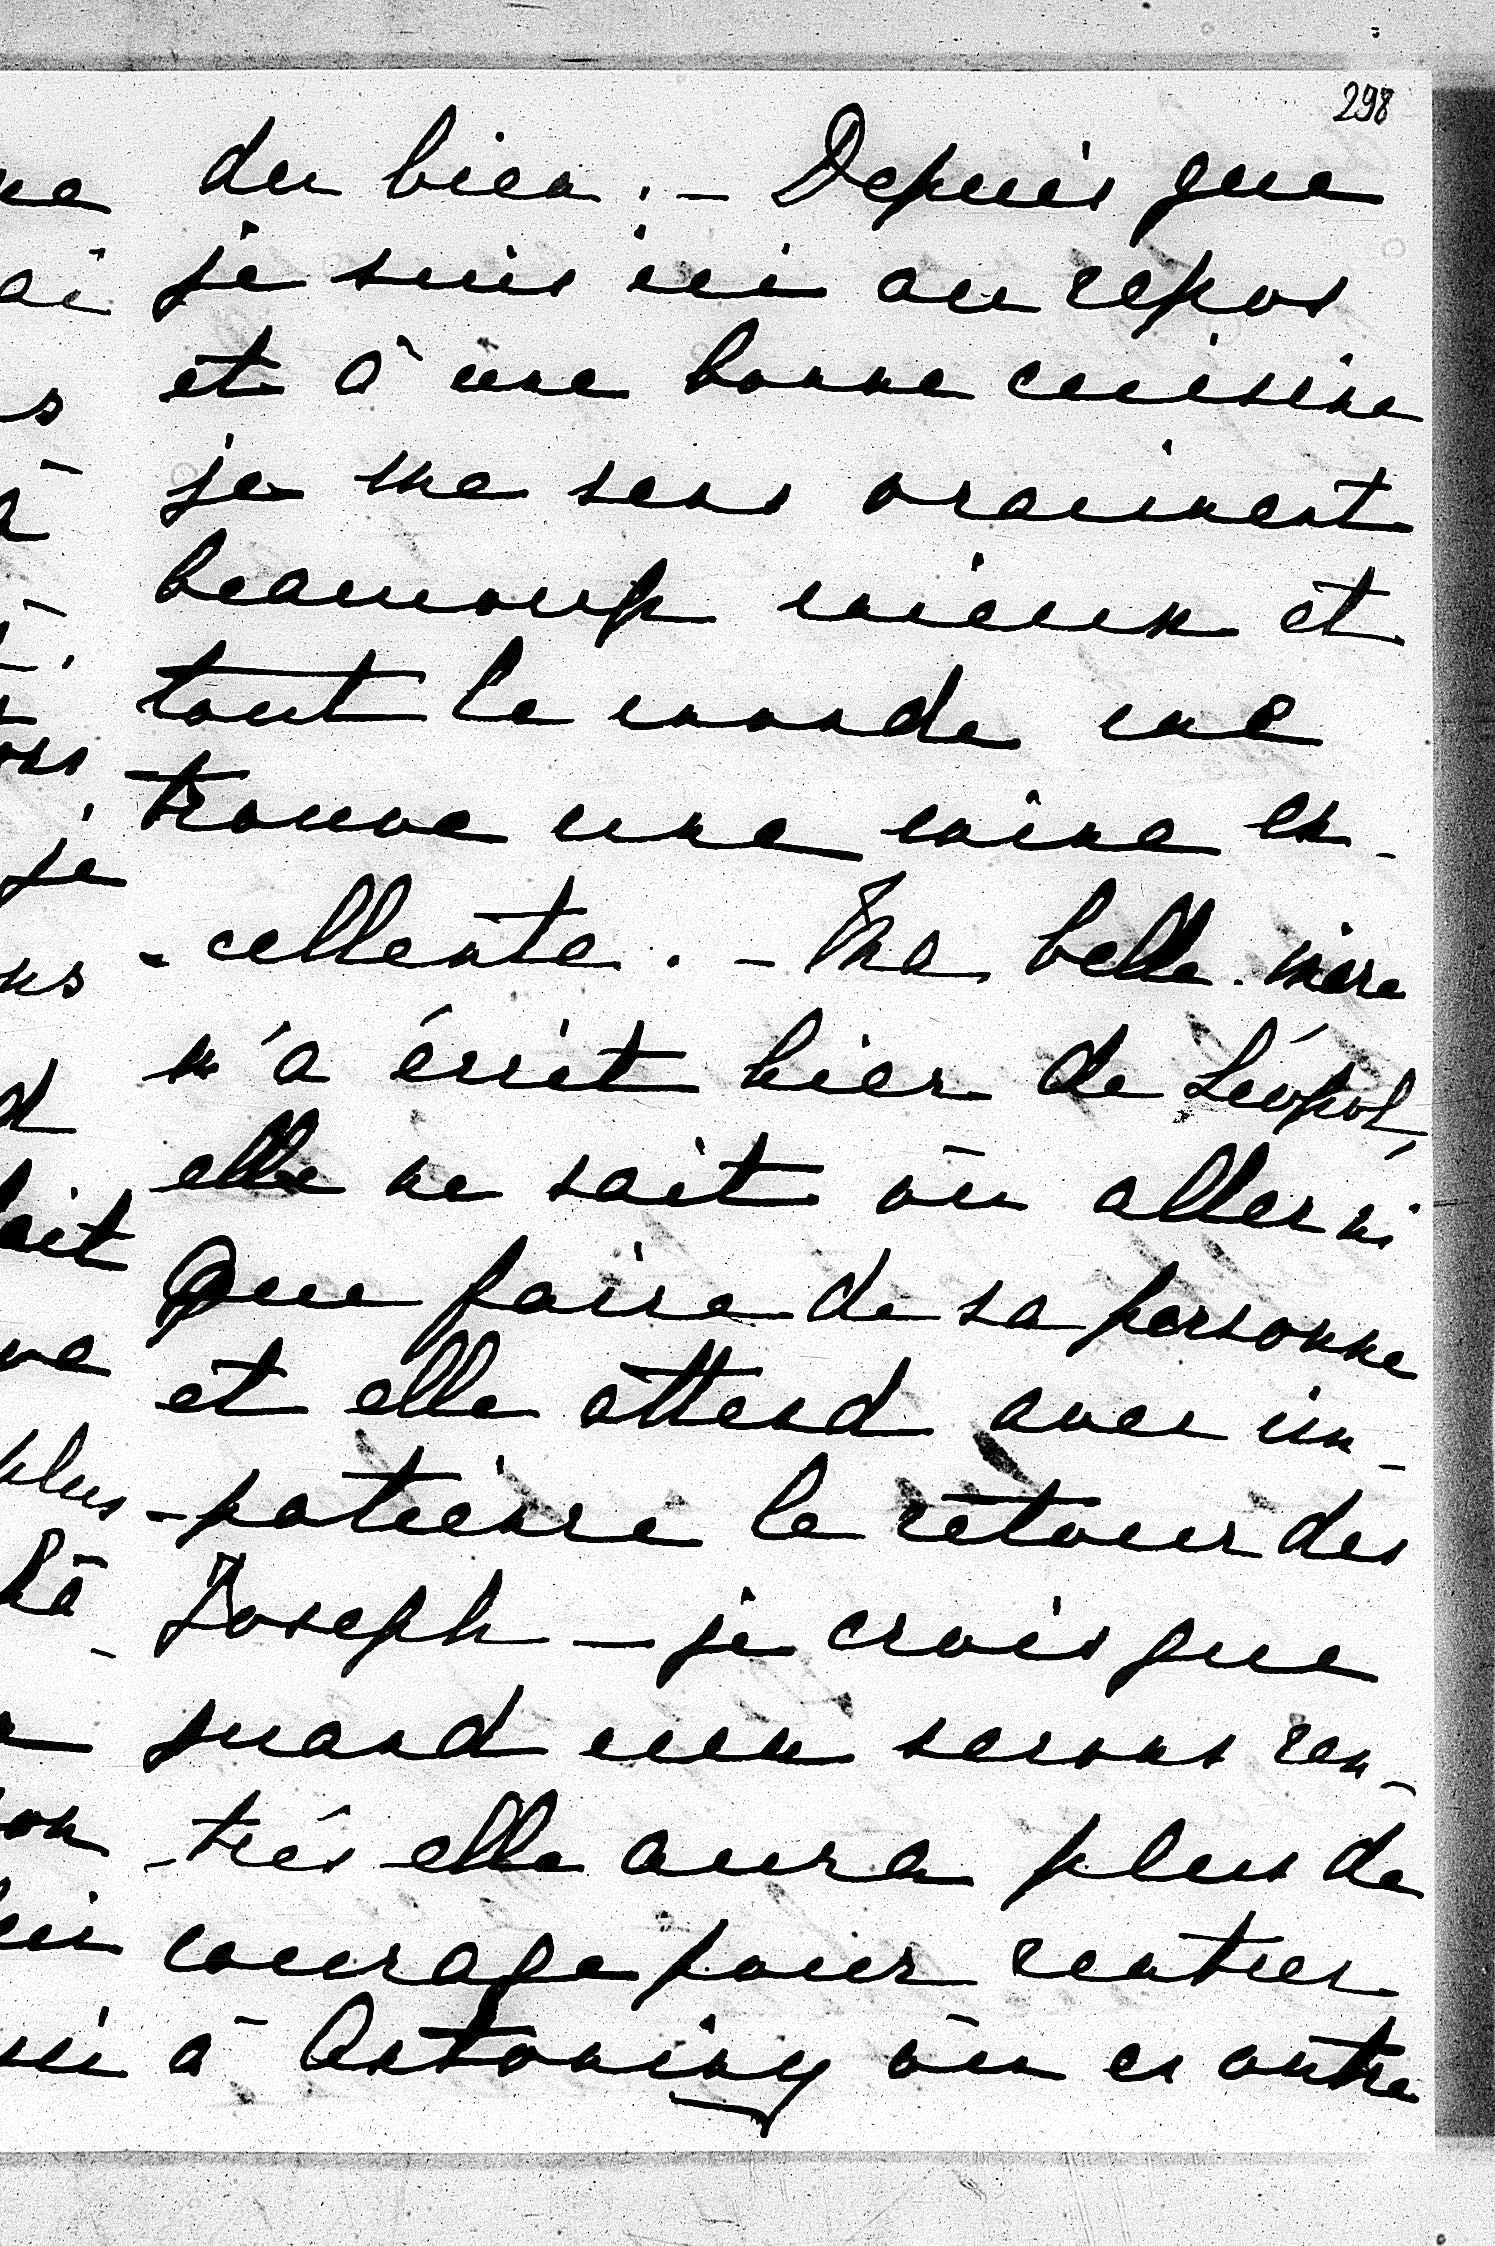 298
du bien. - Depuis que
je suis ici au repos
et à une bonne cuisine
je me sens vraiment
beaucoup mieux et
tout le monde me
trouve une mine ex-
-cellente. - Ma belle-mère
m'a écrit hier de Léopol,
elle ne sait où aller ni
que faire de sa personne
et elle attend avec im-
-patience le retour des
Joseph - je crois que
quand eux serons ren-
-trés elle aura plus de
courage pour rentrer
à Antoniny où en outre